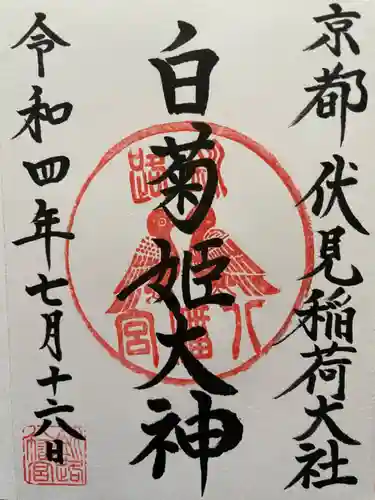 京都伏見稲荷大社
白菊姫大神
令和四年七月十六日
八幡宮